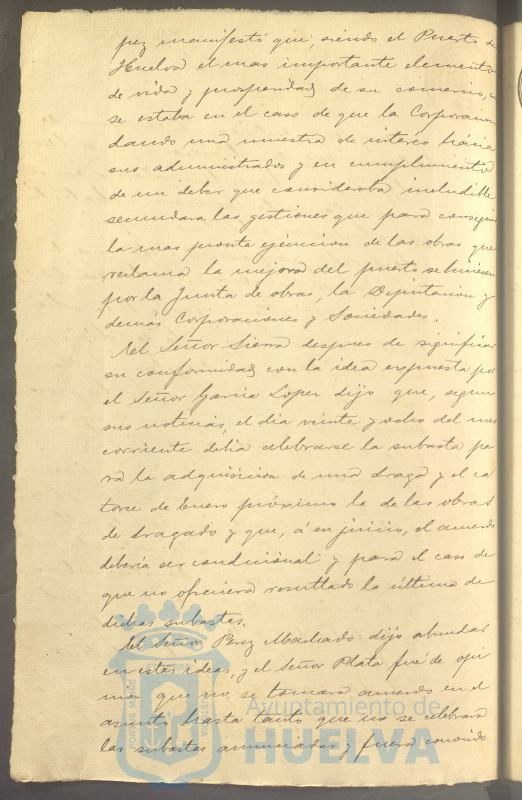 pez manifestó que, siendo el Puerto de
Huelva el mas importante elemento
de vida y prosperidad de su comercio,
se estaba en el caso de que la Corporacion
dando una muestra de interés hácia
sus administrados y en cumplimiento
de un deber que consideraba ineludible
secundara las gestiones que para conseguir
la mas pronta ejecucion de las obras que
reclama la mejora del puerto se hiciesen
por la Junta de obras, la Diputacion y
demás Corporaciones y Sociedades.
El Señor Sierra despues de significar
su conformidad con la idea expuesta por
el Señor Garcia Lopez dijo que, segun
sus noticias, el dia veinte y ocho del mes
corriente debia celebrarse la subasta pa
ra la adquisicion de una draga y el ca
torce de Enero próximo la de las obras
de dragado y que, á su juicio, el acuerdo
deberia ser condicional y para el caso de
que no ofreciera resultado la última de
dichas subastas.
El Señor Perez Machado dijo abundar
en estas ideas, y el Señor Plata fué de opi
nion que no se tomara acuerdo en el
asunto hasta tanto que no se celebrara
las subastas anunciadas y fuera conocido
Ayuntamiento de
HUELVA